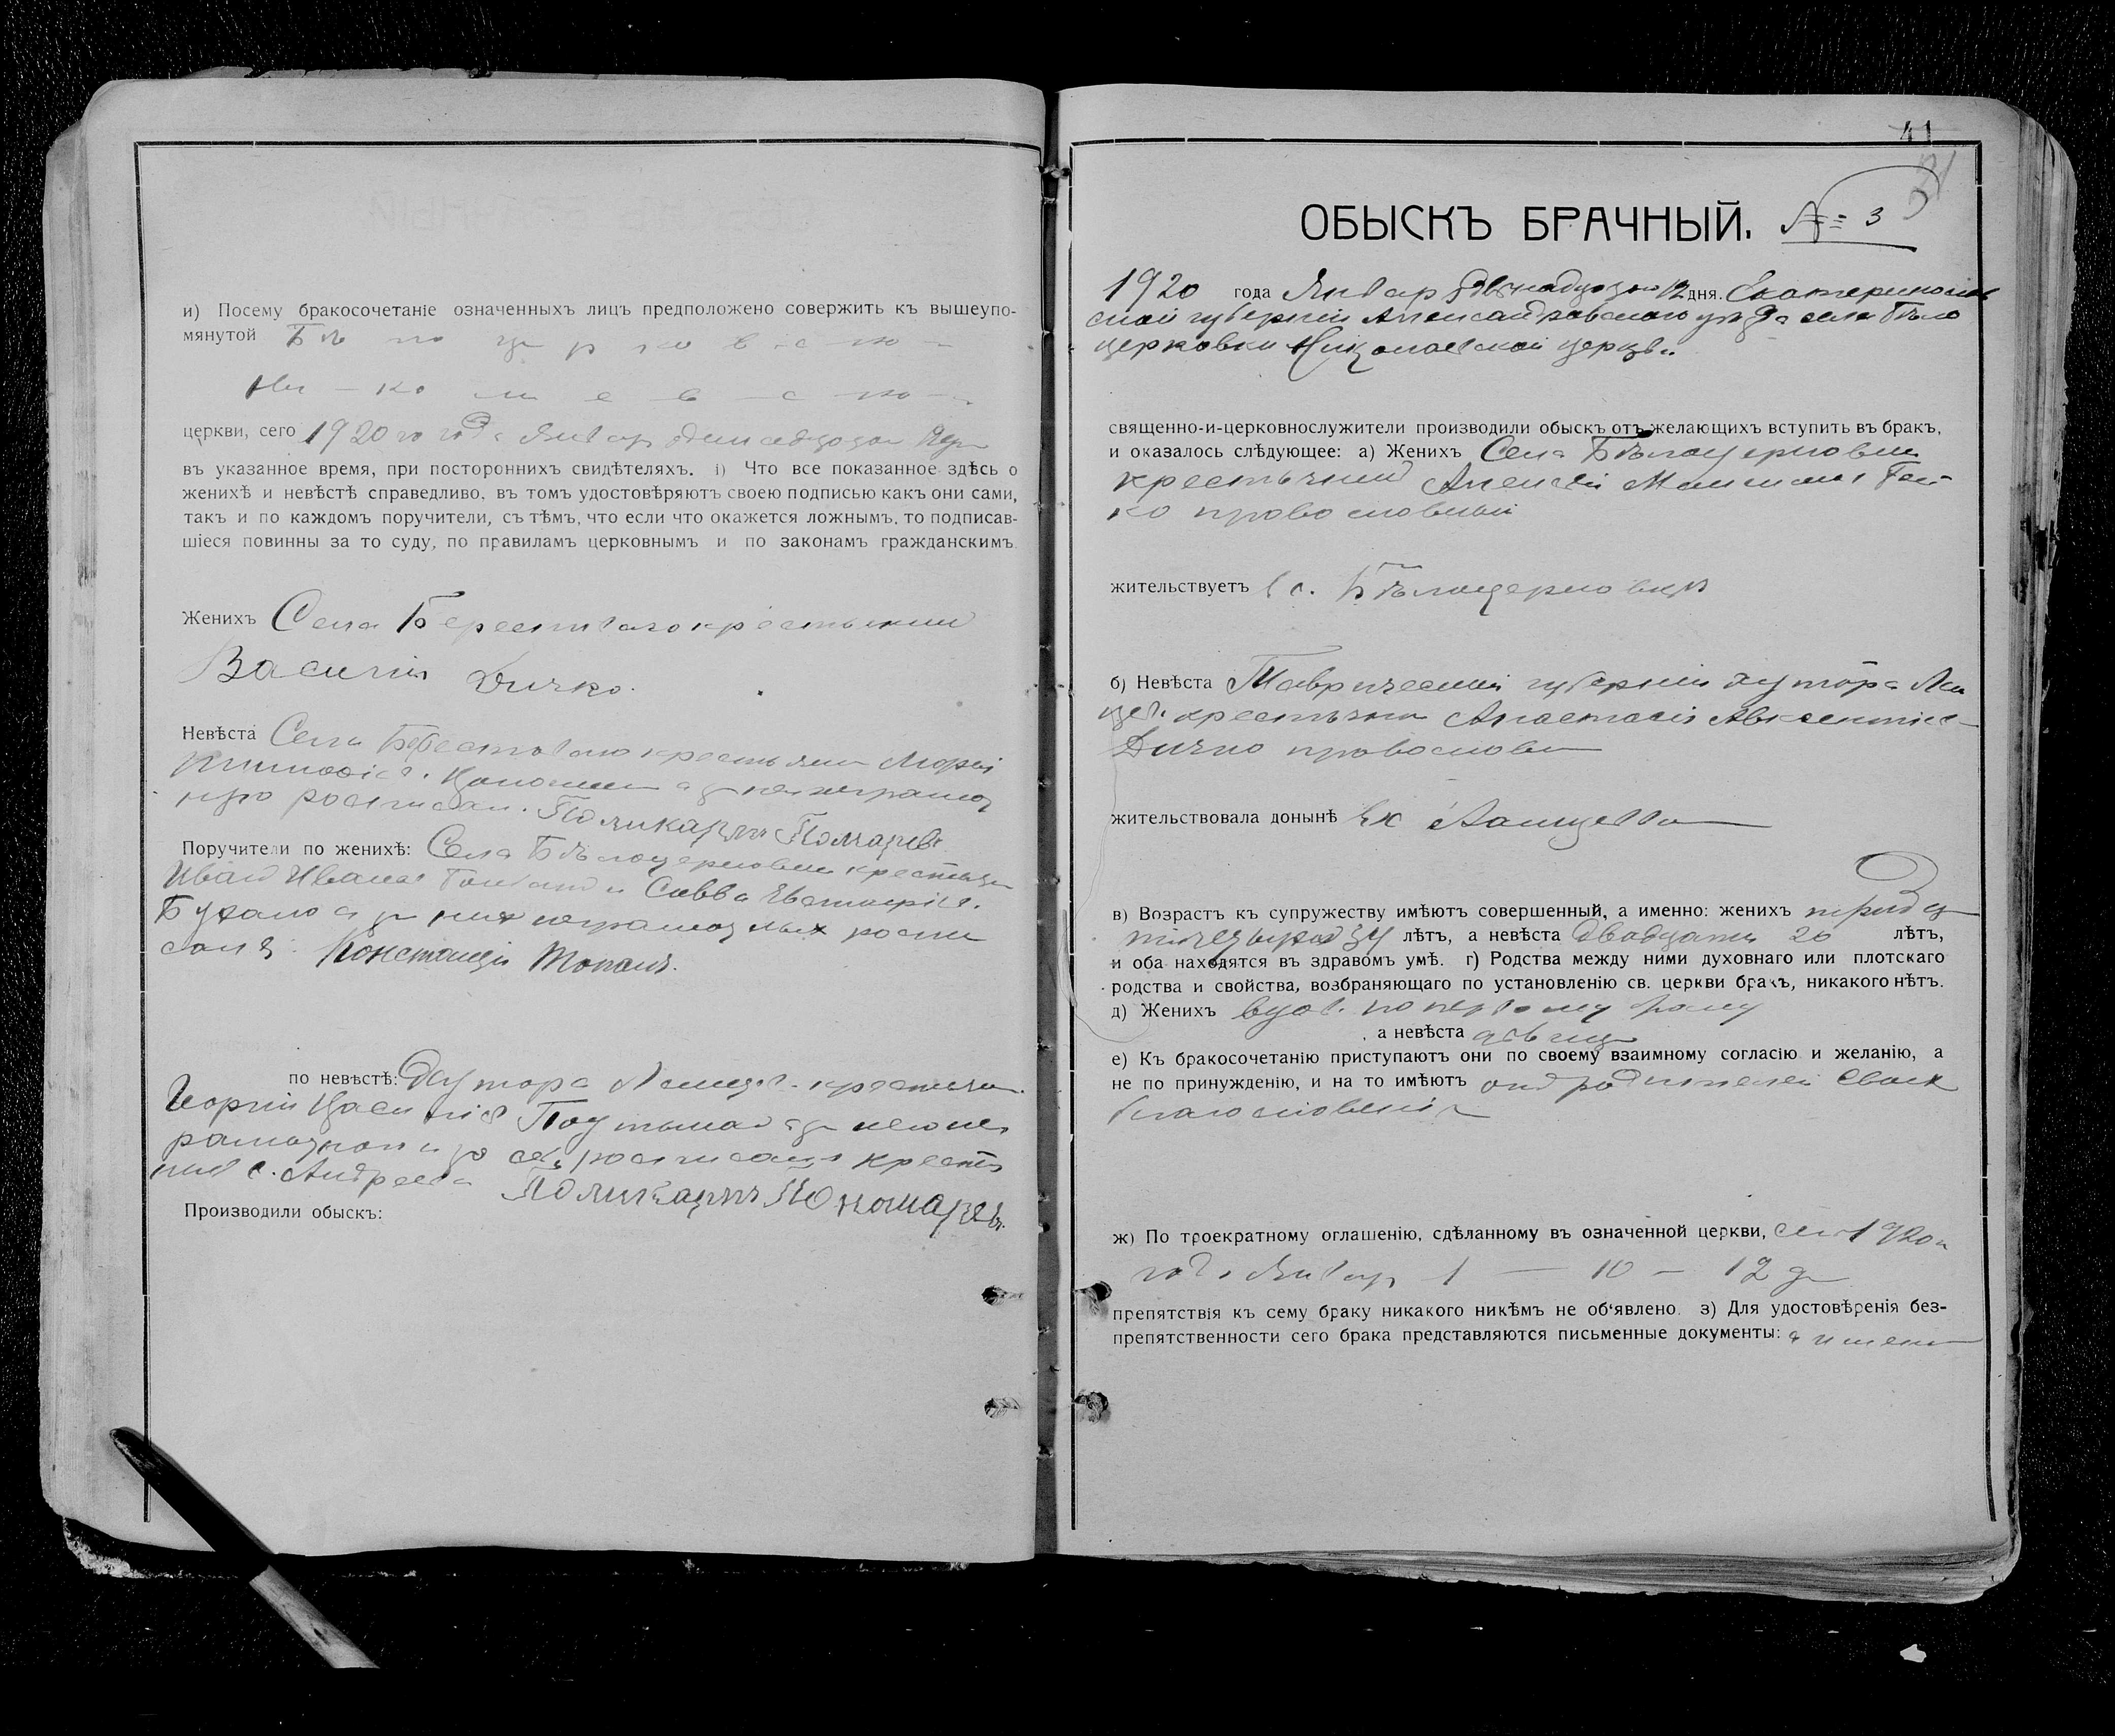 и) Посему бракосочетаніе означенныхъ лицъ предположено совержить къ вышеупо-
мянутой Бѣ ло це р ко в с ко
Ни - ко ла е в с ко
церкви, сего 1920 го года Январ одинадцатаго дня
въ указанное время, при постороннихъ свидѣтеляхъ. і) Что все показанное здѣсь о
женихѣ и невѣстѣ справедливо, въ томъ удостовѣряютъ своею подписью какъ они сами,
такъ и по каждомъ поручители, съ тѣмъ, что если что окажется ложнымъ, то подписав-
шіеся повинны за то суду, по правиламъ церковнымъ и по законамъ гражданскимъ.
Женихъ Села Берестоваго крестьянин
Василій Дичко.
Невѣста Села Берестоваго крестьян Марія
неграмот
росписал. Поликарпъ
Поручители по женихѣ: Села Бѣлоцерковки крестьян
Иван Иванов и Савва
а за них неграмотных роспи
сался Константін Топалъ.
по невѣстѣ: Хутора крестьян
Георгій а за
и за себя росписался крест
с. Андреевка Поликарпъ Пономаревъ.
Производили обыскъ:
41
ОБЫСКЪ БРАЧНЫЙ. № 3
1920 года Январ двѣнадцатаго 12 дня. Екатеринослав
ской губерніи Александровскаго уѣзда села Бѣло
церковки Николаевской церкви
священно-и-церковнослужители производили обыскъ отъ желающихъ вступить въ бракъ,
и оказалось слѣдующее: а) Женихъ Села Бѣлоцерковки
крестьянин Алексѣй
православный
жительствуетъ в с. Бѣлоцерковкѣ
б) Невѣста Таврической губерніи хутора
крестьянка Анастасія Авксентіев
Дичко православн
жительствовала донынѣ
в) Возрастъ къ супружеству имѣютъ совершенный, а именно: женихъ тридц
четыре 34 лѣтъ, а невѣста двадцати 20 лѣтъ,
и оба находятся въ здравомъ умѣ. г) Родства между ними духовнаго или плотскаго
родства и свойства, возбраняющаго по установленію св. церкви бракъ, никакого нѣтъ.
д) Женихъ вдов. по первому браку
, а невѣста дѣвица
е) Къ бракосочетанію приступаютъ они по своему взаимному согласію и желанію, а
не по принужденію, и на то имѣютъ от родителей своих
благословенія
ж) По троекратному оглашенію, сдѣланному въ означенной церкви, сего 1920 г
года Январ 1 — 10 — 12 д
препятствія къ сему браку никакого никѣмъ не об'явлено. з) Для удостовѣренія без-
препятственности сего брака представляются письменные документы: а именно